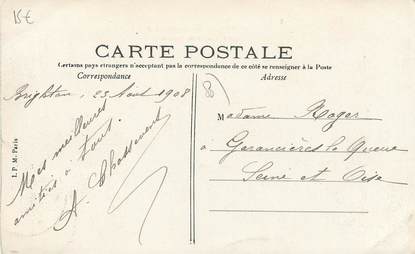 15 €
CARTE POSTALE
Certains pays étrangers n'acceptant pas la correspondance de ce côté se renseigner à la Poste
Correspondance
Adresse
Brighton, 23 Août 1908
Mes meilleures
amitiés à tous.
A. Chassevent
Madame Roger
à Garancières la Queue
Seine et Oise
I. P. M. Paris